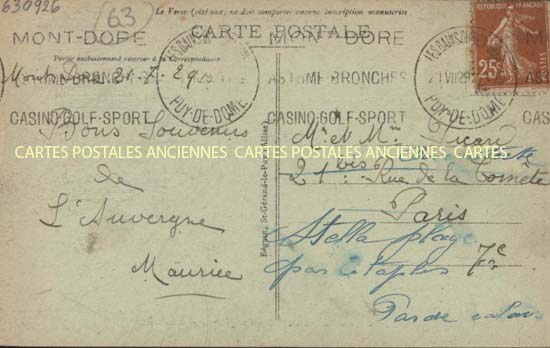 630926
(63)
Le Verso (côté vue) ne doit comporter aucune inscription manuscrite
CARTE POSTALE
MONT-DORE
MONT-DORE
M
Partie exclusivement réservée à la Correspondance
REPUBLIQUE FRANÇAISE
25c
LES BAINS
PUY-DE-DOME
LES BAINS
PUY-DE-DOME
ASTHME-BRONCHES
AS
CASINO-GOLF-SPORT
CASINO-GOLF-SPORT
CA
Bons Souvenirs
de
L'Auvergne
Maurice
CARTES POSTALES ANCIENNES CARTES POSTALES ANCIENNES CARTES
St-Gérand-le-Puy (Allier)
Mr et Mme
21 bis Rue de la Comète
Paris
7e
Stella plage
par Etaples
Pas de calais